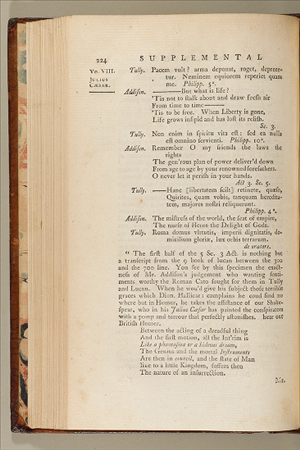 224 SUPPLEMENTAL
Vo. VIII. Tully. Pacem vult? arma deponat, roget, deprece-
JULIUS tur. Neminem equiorem reperiet quam
CÆSAR. me. Philipp. 5ª.
Addison. ——But what is life?
'Tis not to stalk about and draw fresh air
From time to time——
'Tis to be free. When Liberty is gone,
Life grows insipid and has lost its relish.
Sc. 3.
Tully. Non enim in spiritu vita est: sed ea nulla
est omnino servienti. Philipp. 10ª.
Addison. Remember O my friends the laws the
rights
The gen'rous plan of power deliver'd down
From age to age by your renowned forefathers.
O never let it perish in your hands.
Act 3. Sc. 5.
Tully. ——Hanc [libertatem scilt] retinete, quæso,
Quirites, quam vobis, tanquam heredita-
tem, majores nostri reliquerunt.
Philipp. 4ª.
Addison. The mistress of the world, the seat of empire,
The nurse of Heroes the Delight of Gods.
Tully. Roma domus virtutis, imperii dignitatis, do-
micilium gloriæ, lux orbis terrarum.
de oratore.
" The first half of the 5 Sc. 3 Act. is nothing but
a transcript from the 9 book of lucan between the 300
and the 700 line. You see by this specimen the exact-
ness of Mr. Addison's judgement who wanting senti-
ments worthy the Roman Cato sought for them in Tully
and Lucan. When he wou'd give his subject those terrible
graces which Dion. Hallicar: complains he could find no
where but in Homer, he takes the assistance of our Shake-
spear, who in his Julius Cæsar has painted the conspirators
with a pomp and terrour that perfectly astonishes. hear our
British Homer.
Between the acting of a dreadful thing
And the first motion, all the Int'rim is
Like a phantasma or a hideous dream,
The Genius and the mortal Instruments
Are then in council, and the state of Man
like to a little Kingdom, suffers then
The nature of an insurrection.